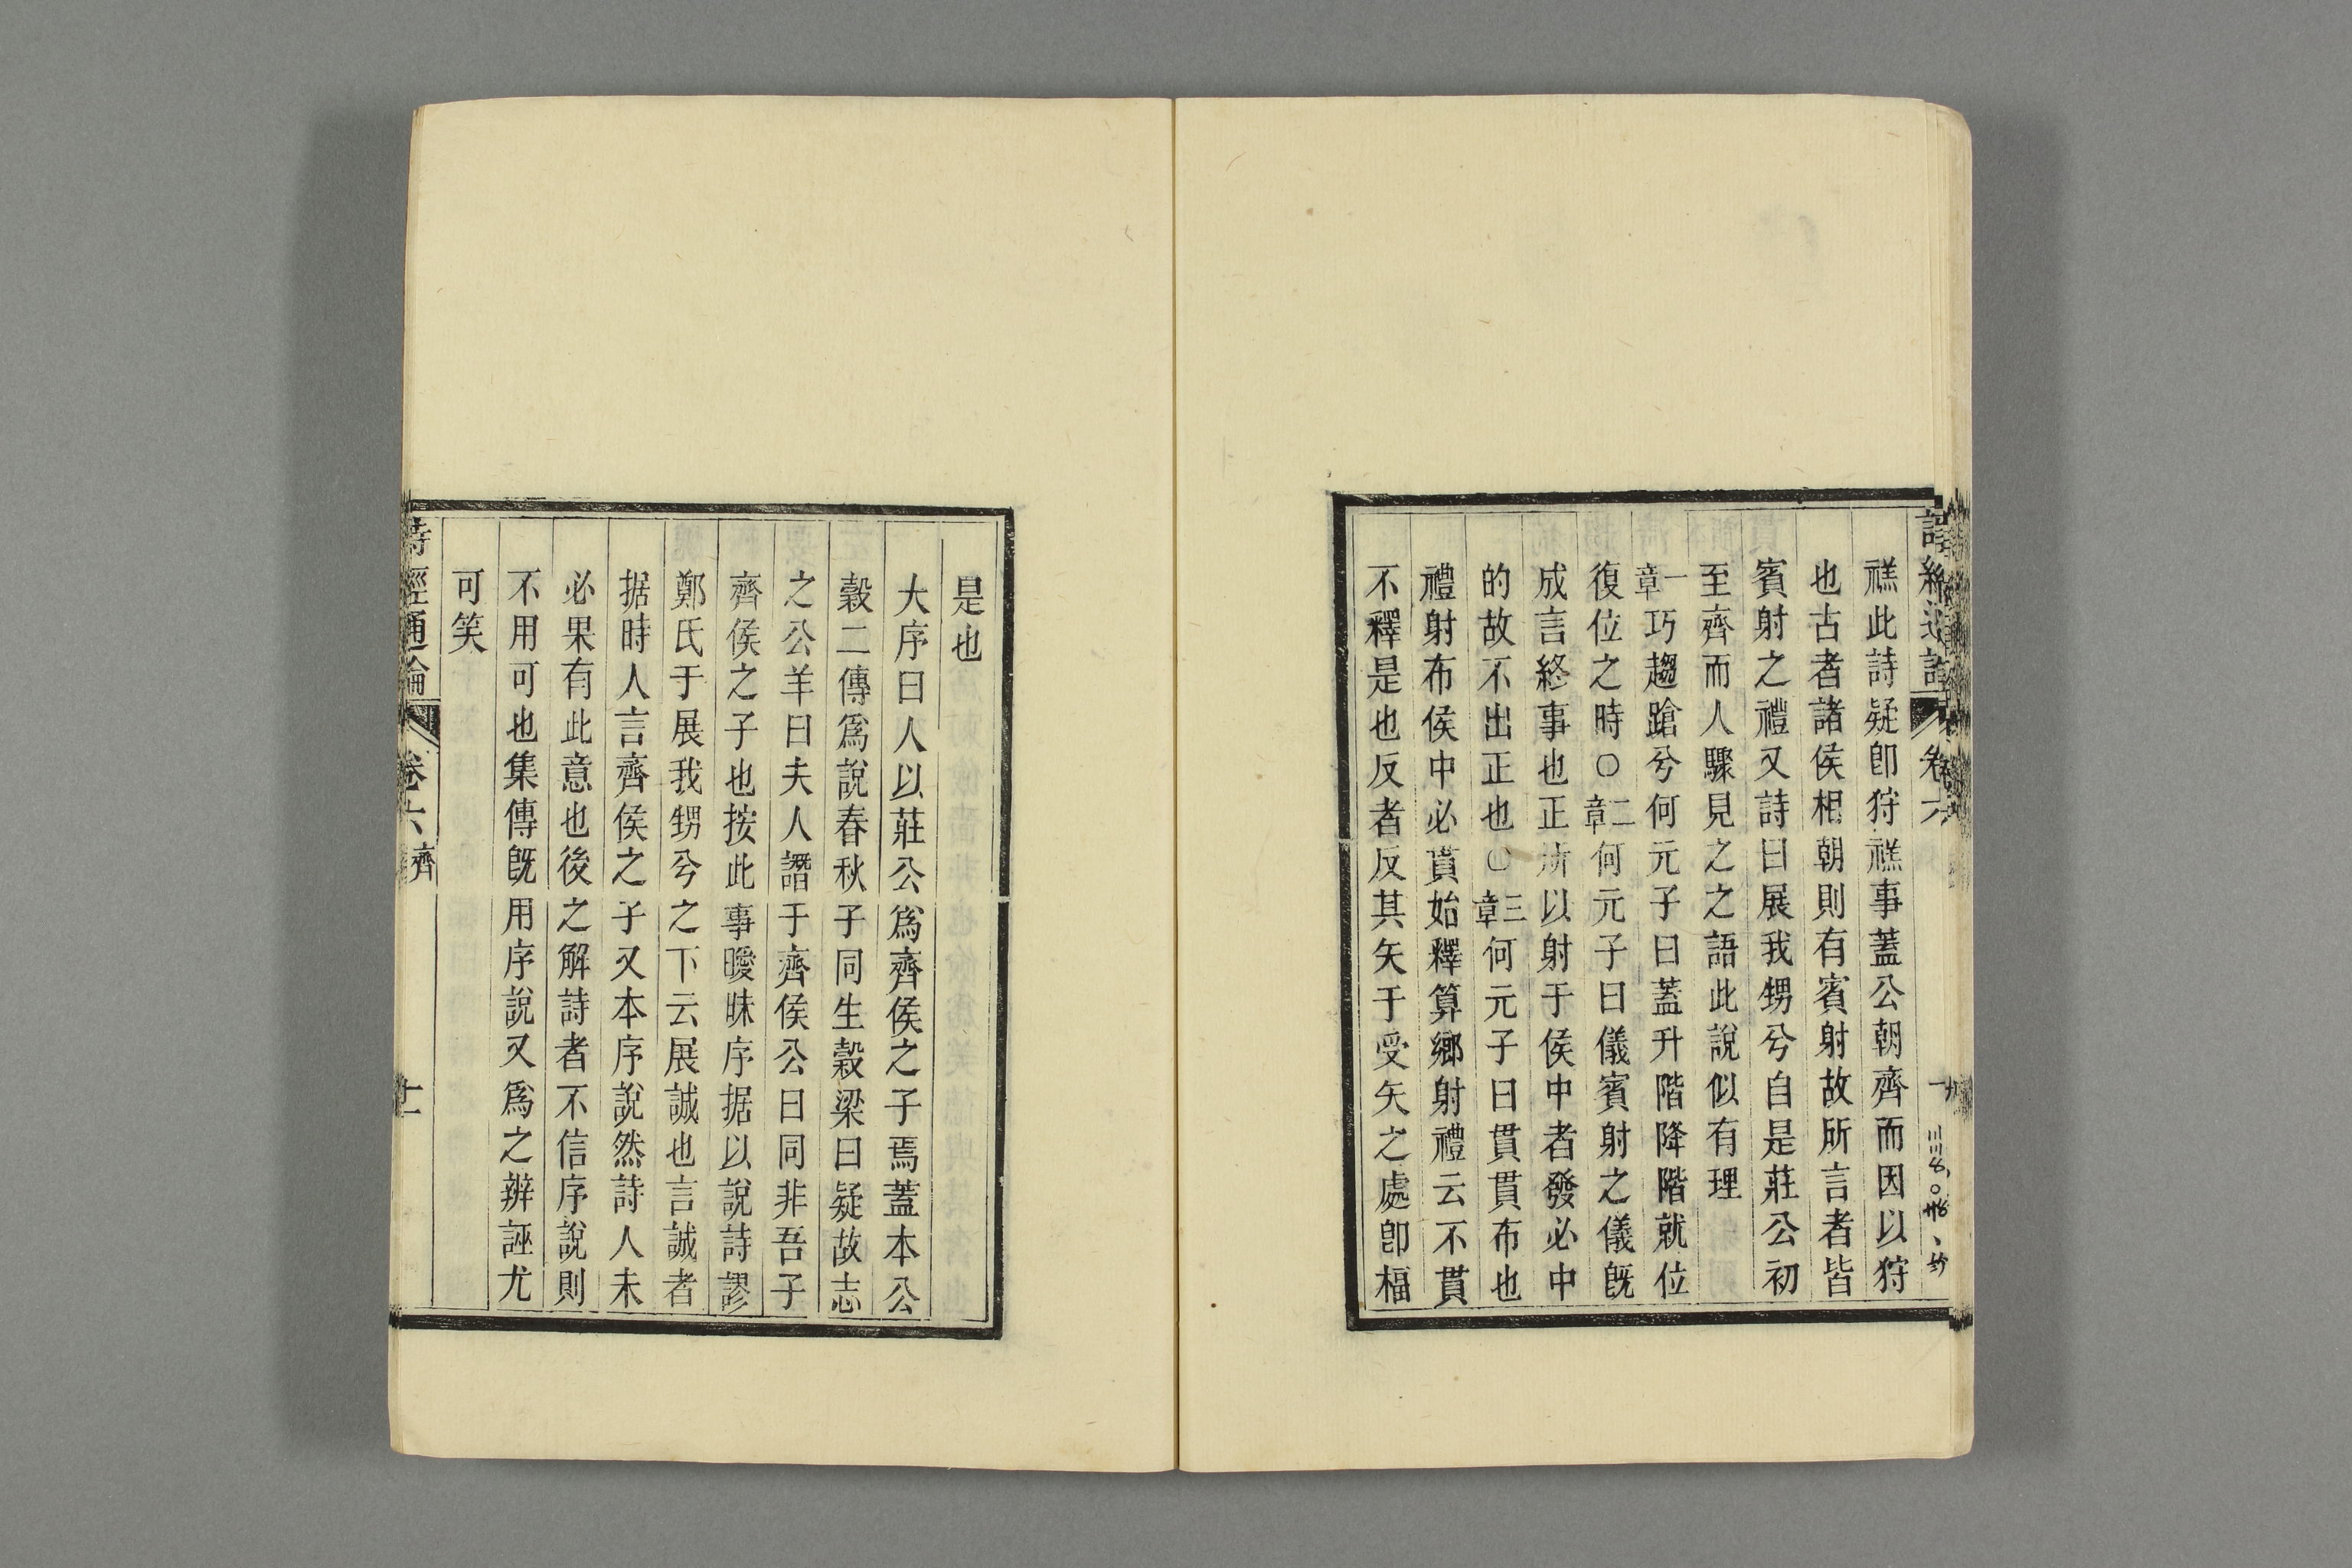 詩經通論 卷六
禚此詩疑卽狩禚事蓋公朝齊而因以狩
也古者諸侯相朝則有賓射故所言者皆
賓射之禮又詩曰展我甥兮自是莊公初
至齊而人驟見之之語此說似有理
一章巧趨蹌兮何元子曰蓋升階降階就位
復位之時〇二章何元子曰儀賓射之儀旣
成言終事也正所以射于侯中者發必中
的故不出正也〇三章何元子曰貫貫布也
禮射布侯中必貫始釋算鄉射禮云不貫
不釋是也反者反其矢于受矢之處卽楅
是也
大序曰人以莊公爲齊侯之子焉蓋本公
穀二傳爲說春秋子同生穀梁曰疑故志
之公羊曰夫人譖于齊侯公曰同非吾子
齊侯之子也按此事曖昧序据以說詩謬
鄭氏于展我甥兮之下云展誠也言誠者
据時人言齊侯之子又本序說然詩人未
必果有此意也後之解詩者不信序說則
不用可也集傳旣用序說又爲之辨誣尤
可笑
詩經通論 卷六 齊 十一